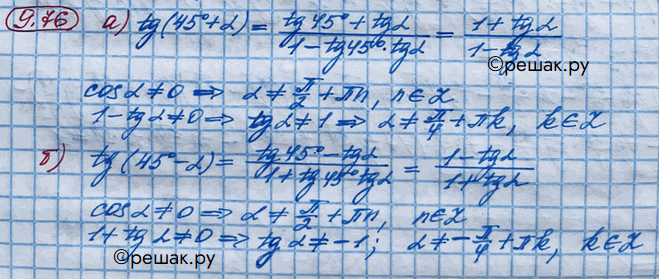 9.76 а) tg(45°+α) = (tg45°+tgα)/(1-tg45°·tgα) = (1+tgα)/(1-tgα)
©решак.ру
cosα≠0 ⇒ α ≠ π/2 + πn, n∈Z
1-tgα≠0 ⇒ tgα≠1 ⇒ α ≠ π/4 + πk, k∈Z
б) tg(45°-α) = (tg45°-tgα)/(1+tg45°tgα) = (1-tgα)/(1+tgα)
©решак.ру
cosα≠0 ⇒ α ≠ π/2 + πn, n∈Z
1+tgα≠0 ⇒ tgα≠-1; α ≠ -π/4 + πk, k∈Z